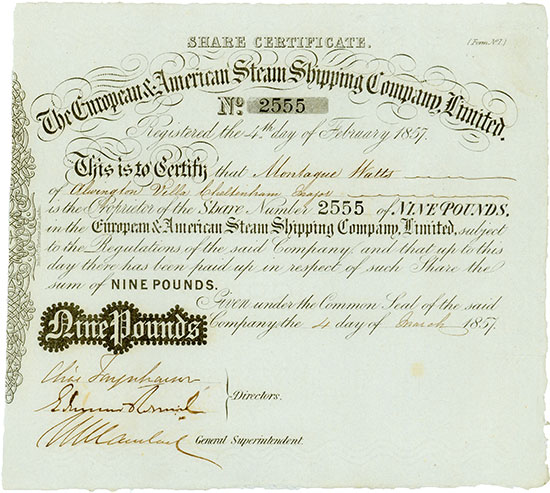 SHARE CERTIFICATE.
(Form No. 1.)
The European & American Steam Shipping Company, Limited.
No. 2555
Registered the 4th day of February 1857.
This is to Certify that Montague Watts
of Alvington Villa Cheltenham
is the Proprietor of the Share Number 2555 of NINE POUNDS,
in the European & American Steam Shipping Company, Limited, subject
to the Regulations of the said Company, and that up to this
day there has been paid up in respect of such Share the
sum of NINE POUNDS.
Given under the Common Seal of the said
Nine Pounds. Company, the 4 day of March 1857.
Directors.
General Superintendent.